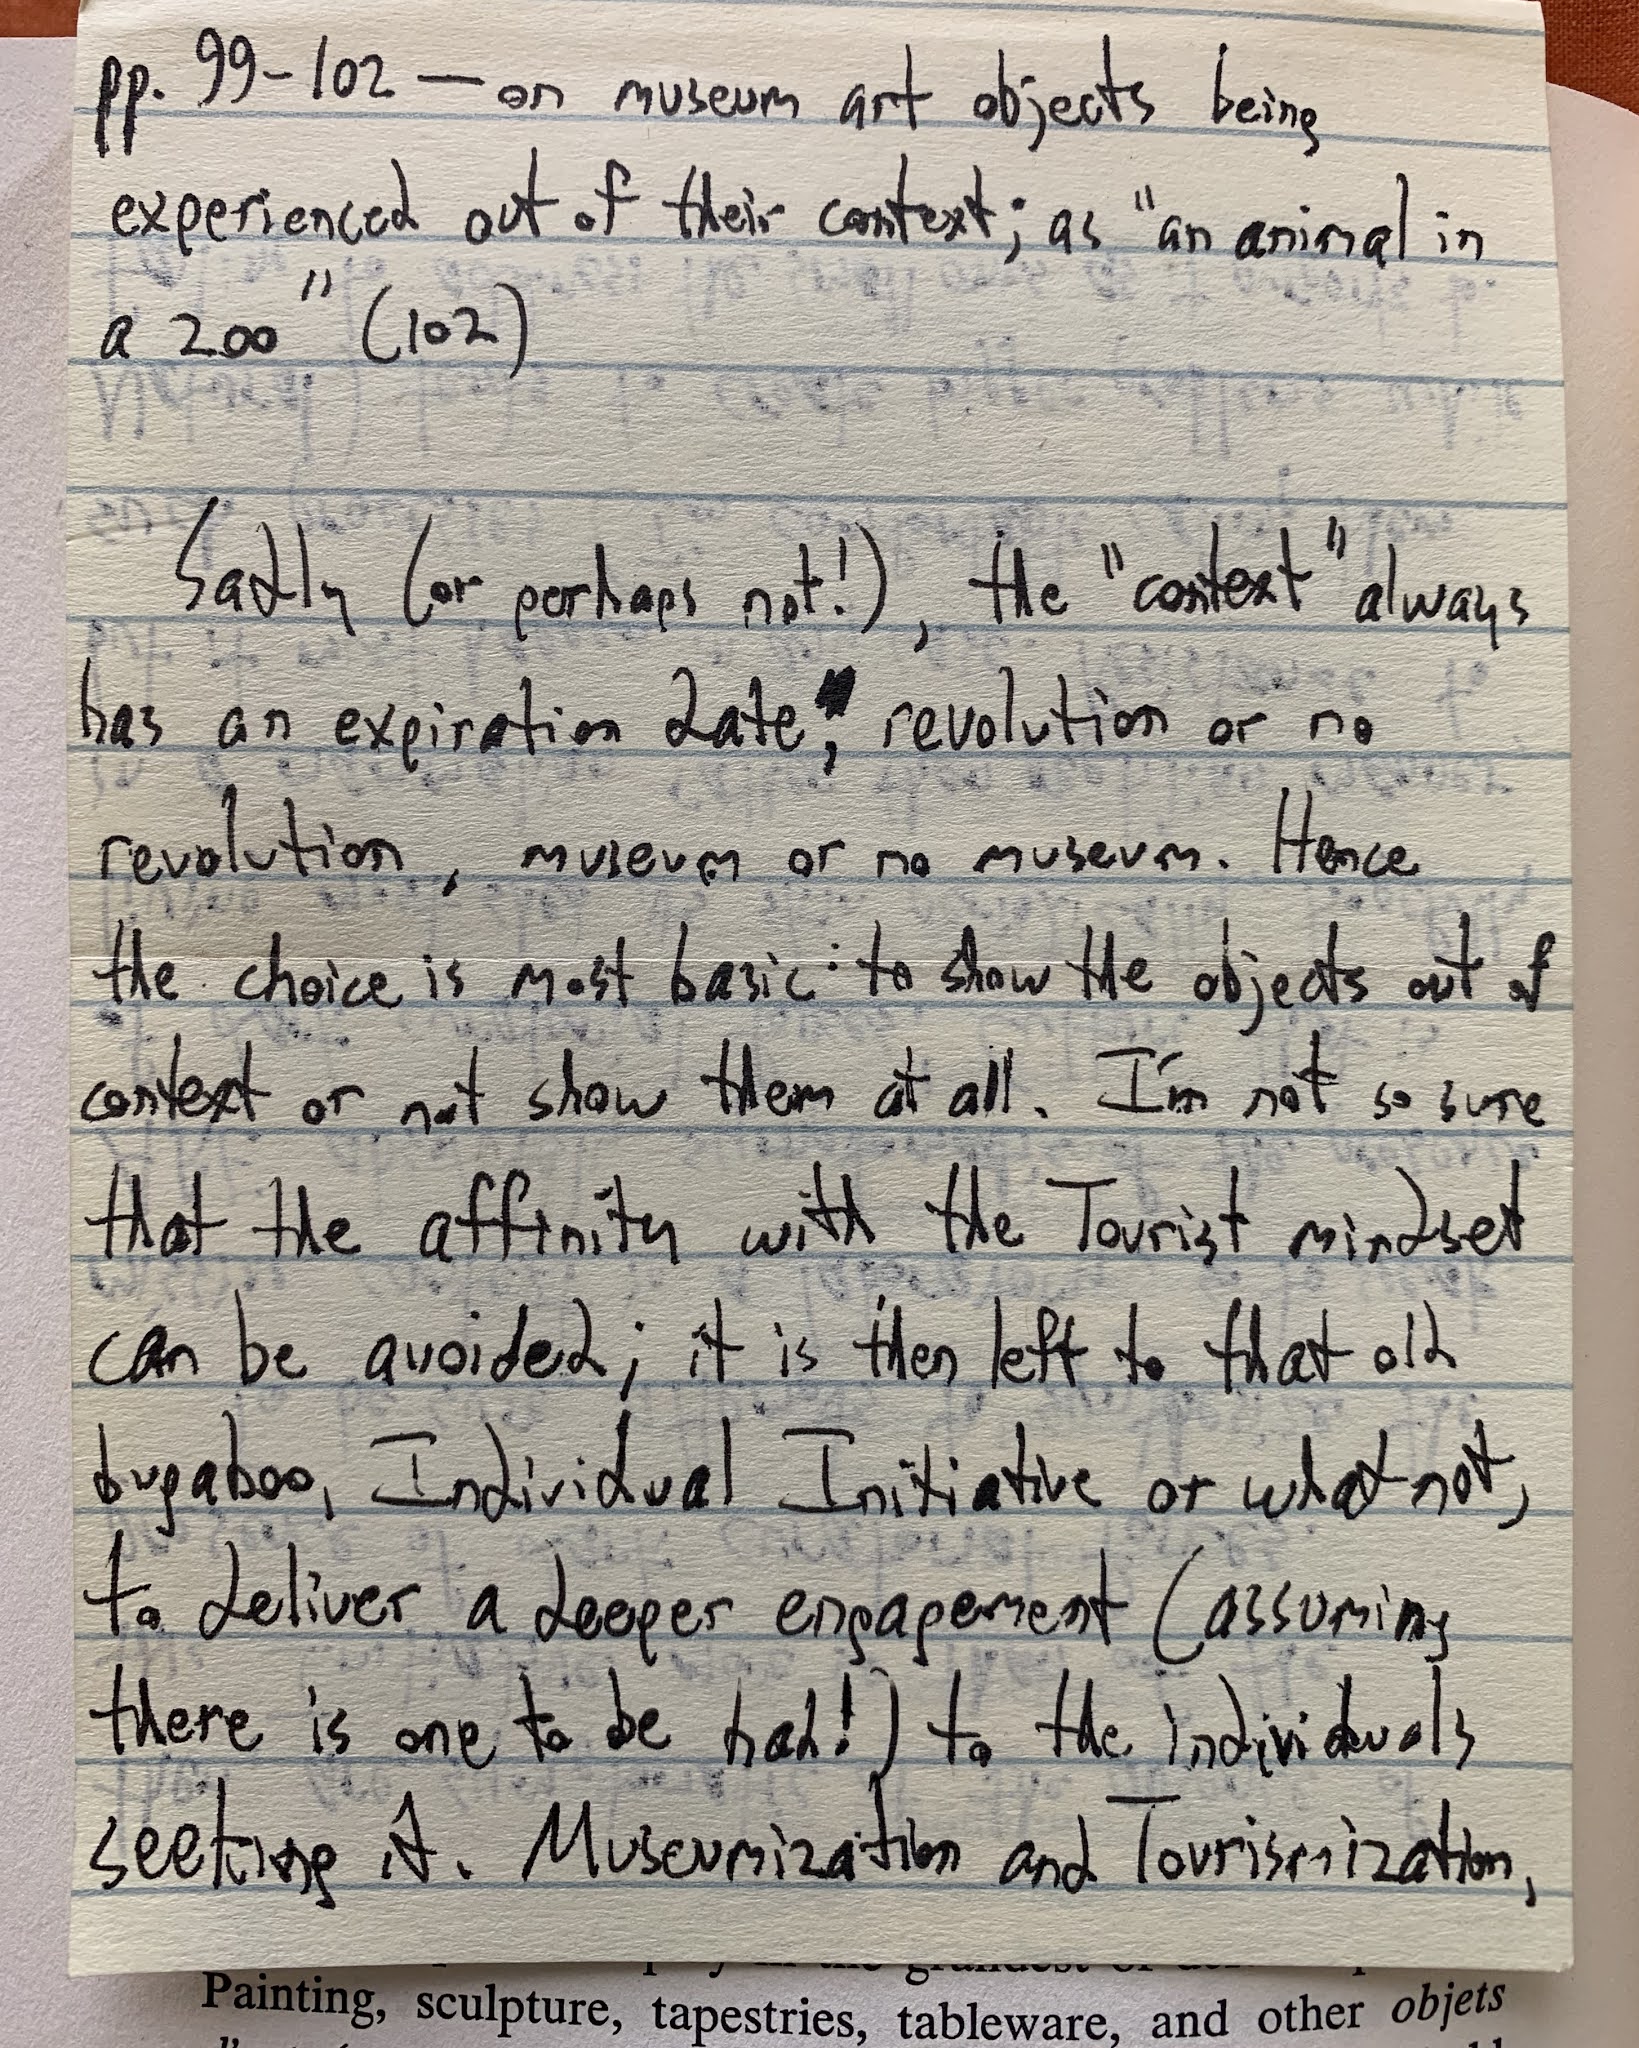 pp. 99-102 — on museum art objects being
experienced out of their context; as "an animal in
a zoo" (102)
Sadly (or perhaps not!), the "context" always
has an expiration date, revolution or no
revolution, museum or no museum. Hence
the choice is most basic: to show the objects out of
context or not show them at all. I'm not so sure
that the affinity with the Tourist mindset
can be avoided; it is then left to that old
bugaboo, Individual Initiative or whatnot,
to deliver a deeper engagement (assuming
there is one to be had!) to the individuals
seeking it. Museumization and Tourismization,
Painting, sculpture, tapestries, tableware, and other objets